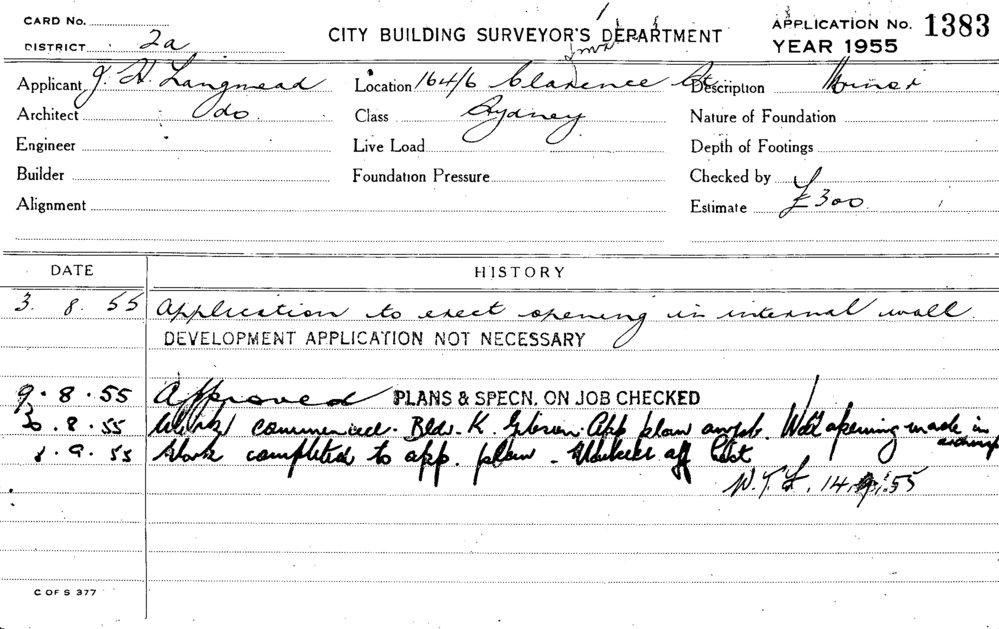 CARD No.
CITY BUILDING SURVEYOR'S DEPARTMENT
APPLICATION No. 1383
DISTRICT 2a
YEAR 1955
Applicant J. H. Langmead
Location 164/6 Clarence St
Description Minor
Architect do
Class Sydney
Nature of Foundation
Engineer
Live Load
Depth of Footings
Builder
Foundation Pressure
Checked by
Alignment
Estimate £300
DATE
HISTORY
3. 8. 55 Application to erect opening in internal wall
DEVELOPMENT APPLICATION NOT NECESSARY
9. 8. 55 Approved PLANS & SPECN. ON JOB CHECKED
30. 8. 55 Work commenced. Bldr. K. Gibson. App plan on job. Wall opening made in
9. 55 Work completed to app. plan - off list
14. 9. 55
C OF S 377